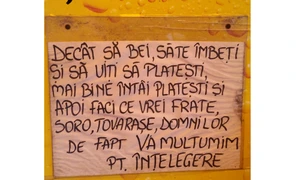 DECÂT SĂ BEI, SĂTE ÎMBEȚI
ȘI SĂ UIȚI SĂ PLATEȘTI,
MAI BINE ÎNTÂI PLATEȘTI ȘI
APOI FACI CE VREI FRATE,
SORO, TOVARAȘE, DOMNILOR
DE FAPT VĂ MULTUMIM
PT. ÎNȚELEGERE